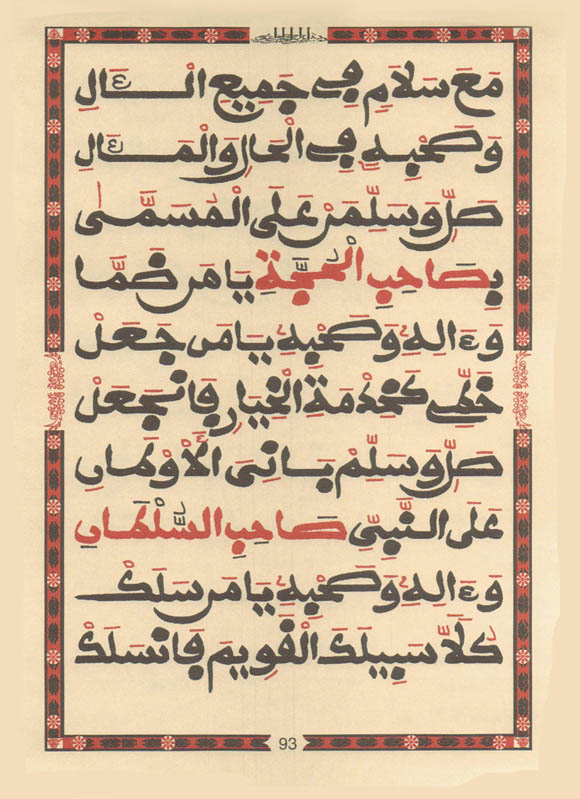 مَعَ سَلَامٍ فِي جَمِيعِ الْـَٔالِ
وَصَحْبِهِ فِي الْحَالِ وَالْمَـَٔالِ
صَلِّ وَسَلِّمَنْ عَلَى الْمُسَمَّى
بِصَاحِبِ الْحُجَّةِ يَا مَن ضَمَّا
وَءَالِهِ وَصَحْبِهِ يَا مَن جَعَلْ
خَطِّي كَخِدْمَةِ الْخِيَارِ فَانجَعَلْ
صَلِّ وَسَلِّمْ بَانِيَ الْأَوْطَانِ
عَلَى النَّبِيِّ صَاحِبِ السُّلْطَانِ
وَءَالِهِ وَصَحْبِهِ يَا مَن سَلَكْ
كُلًّا سَبِيلَكَ الْقَوِيمَ فَانسَلَكْ
93